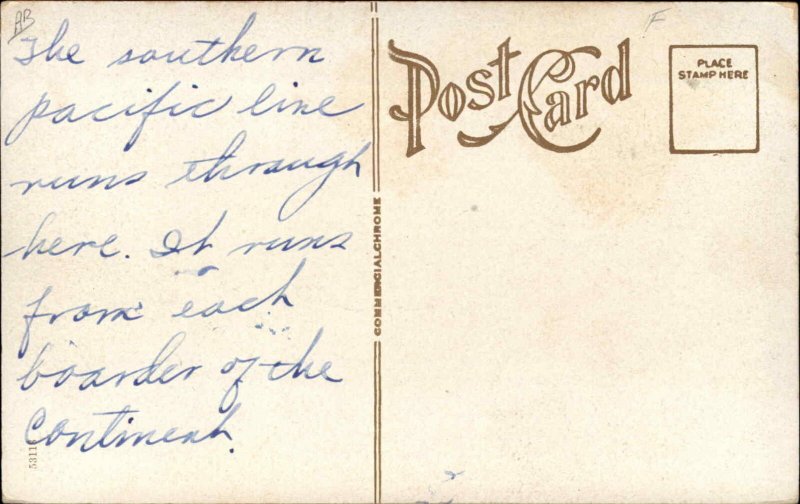 AB
The southern
pacific line
runs through
here. It runs
from each
boarder of the
Continent.
5311
COMMERCIALCHROME
F
Post Card
PLACE
STAMP HERE